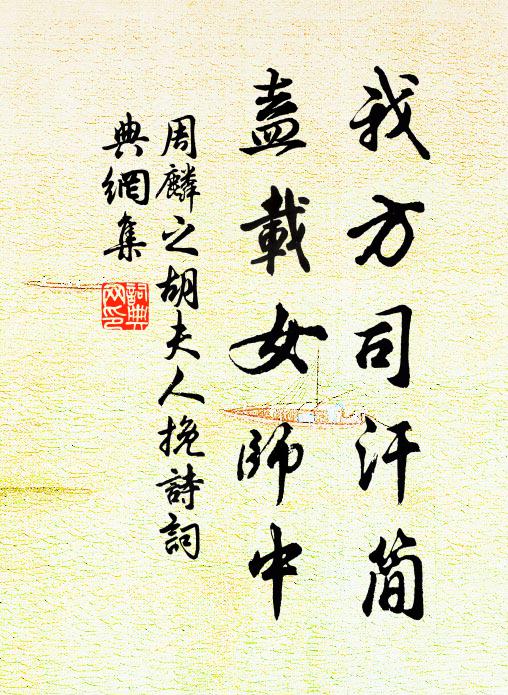 我方司汗简
盍載女師中
周麟之胡夫人挽詩詞
典網集
詞典
网印